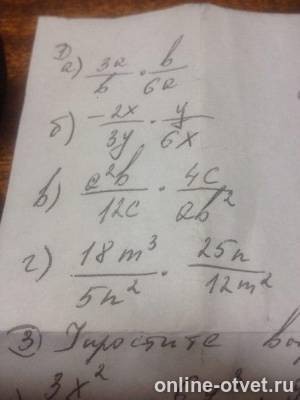 а) 3a/b · b/6a
б) -2x/3y · y/6x
в) a²b/12c · 4c/ab²
г) 18m³/5n² · 25n/12m²
③ Упростите
3x²
online-otvet.ru